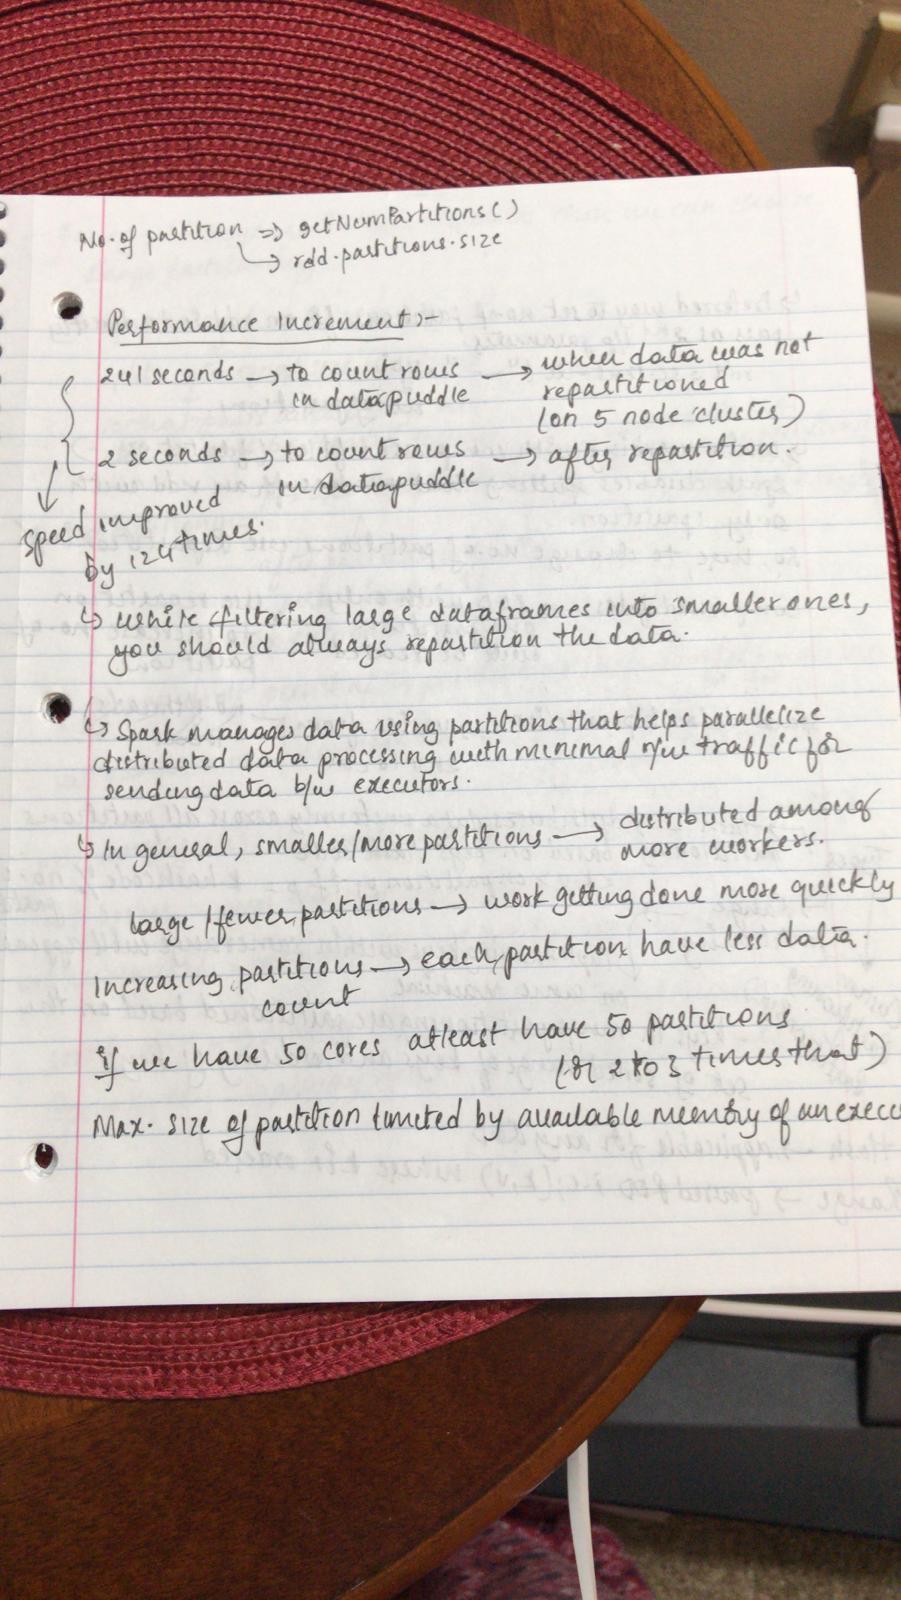 No. of partition => getNumPartitions()
↳ rdd.partitions.size
Performance Increment:-
241 seconds → to count rows → when data was not
in datapuddle repartitioned
(on 5 node cluster)
2 seconds → to count rows → after repartition.
in datapuddle
Speed improved
by 124 times.
↳ While filtering large dataframes into smaller ones,
you should always repartition the data.
↳ Spark manages data using partitions that helps parallelize
distributed data processing with minimal n/w traffic for
sending data b/w executors.
↳ In general, smaller/more partitions → distributed among
more workers.
large/fewer partitions → work getting done more quickly
Increasing partitions → each partition have less data.
count
if we have 50 cores atleast have 50 partitions
(or 2 to 3 times that)
Max. size of partition limited by available memory of an execu